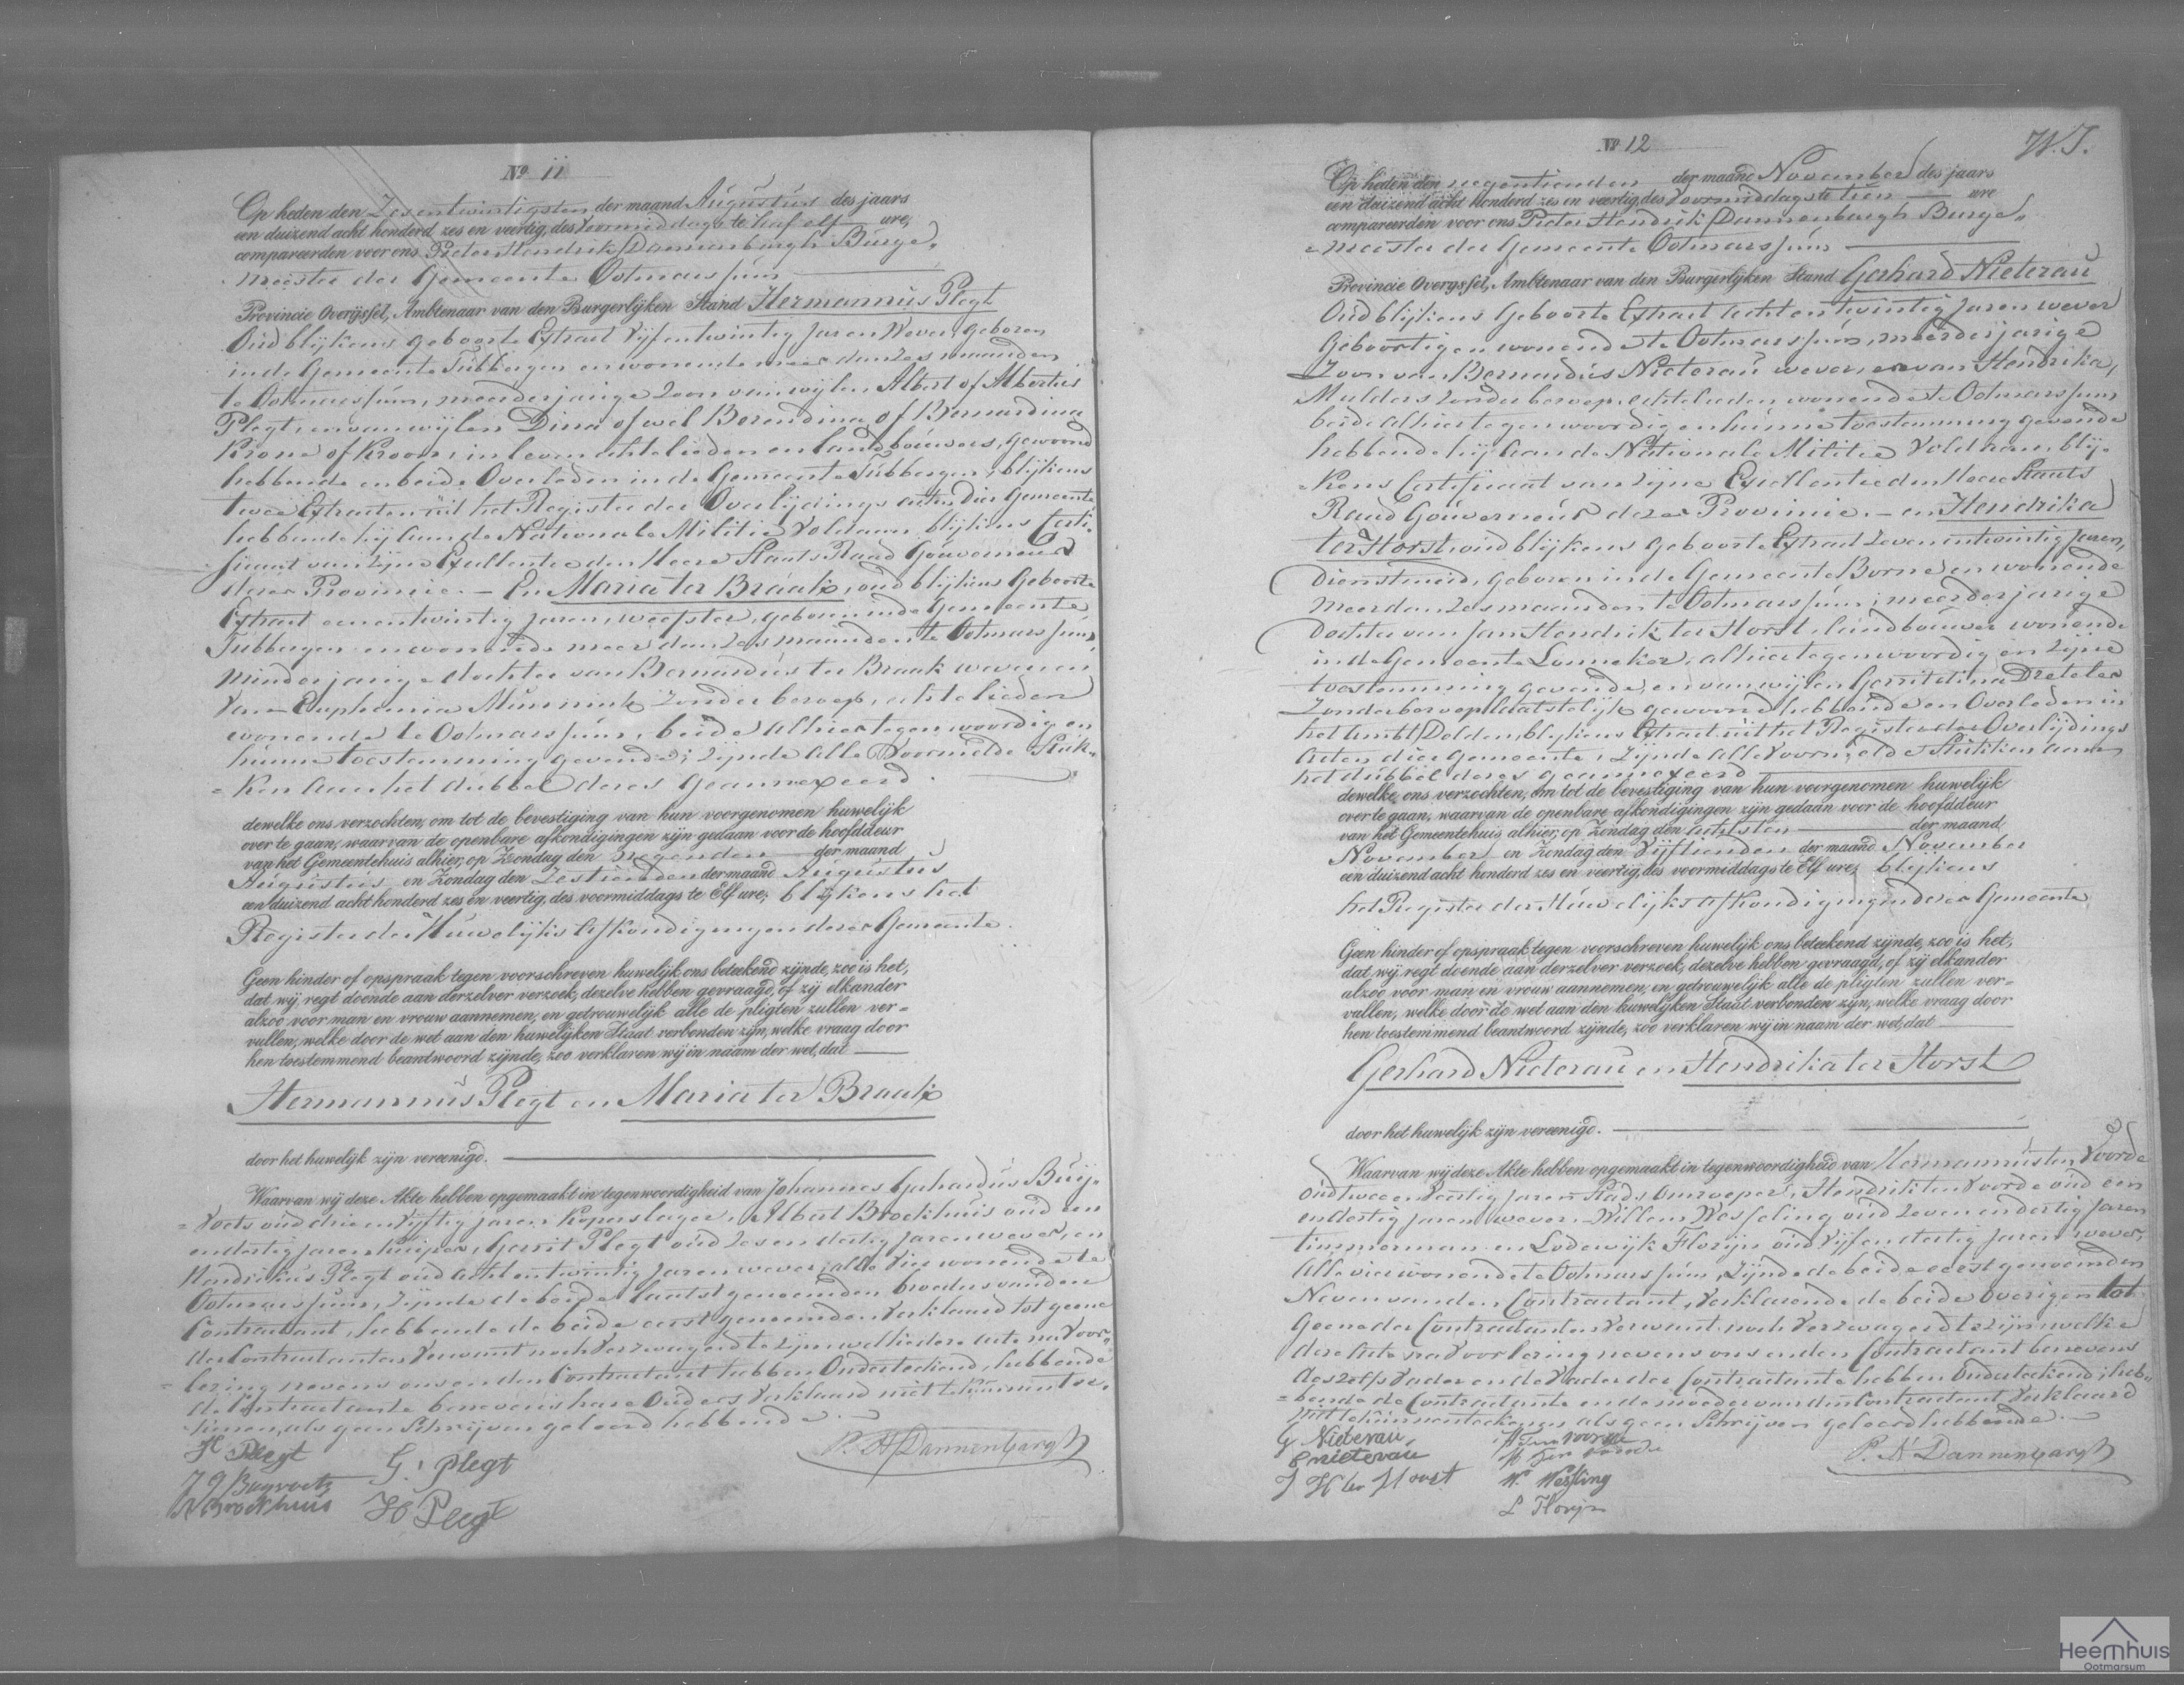 No 11
Op heden den Zesentwintigsten der maand Augustus des jaars
een duizend acht honderd zes en veertig, des Voormiddags te half elf ure,
compareerden voor ons Pieter Hendrik Dannenbargh Burge„
meester der Gemeente Ootmarssum
Provincie Overijssel, Ambtenaar van den Burgerlijken Stand Hermannus Plegt
Oud blijkens geboorte Extract Vijfentwintig Jaren Wever, geboren
in de Gemeente Tubbergen en wonende meer dan zes maanden
te Ootmarssum, meerderjarige Zoon van wijlen Albert of Albertus
Plegt, en van wijlen Dina ofwel Berendina of Bernardina
Krone of Kroon, in leven echtelieden en landbouwers, gewoond
hebbende en beide Overleden in de Gemeente Tubbergen, blijkens
twee Extracten uit het Register der Overlijdings acten dier Gemeente
hebbende hij aan de Nationale Militie Voldaan blijkens Certi„
ficaat van Zijne Excellentie den Heere Staats Raad Gouverneur
dezer Provincie. — En Maria ter Braak, oud blijkens Geboorte
Extract eenentwintig Jaren, weefster, geboren in de Gemeente
Tubbergen en wonende meer dan zes maanden te Ootmarssum,
minderjarige dochter van Bernardus ter Braak wever en
van Euphemia Munnink zonder beroep, echtelieden
wonende te Ootmarssum, beide alhier tegenwoordig en
hunne toestemming gevende; zijnde alle Voormelde Stuk„
ken aan het dubbel dezes geannexeerd.
dewelke ons verzochten, om tot de bevestiging van hun voorgenomen huwelijk
over te gaan, waarvan de openbare afkondigingen zijn gedaan voor de hoofddeur
van het Gemeentehuis alhier, op Zondag den negenden der maand
Augustus en Zondag den Zestienden der maand Augustus
een duizend acht honderd zes en veertig, des voormiddags te Elf ure; blijkens het
Register der Huwelijks Afkondigingen dezer Gemeente.
Geen hinder of opspraak tegen voorschreven huwelijk ons beteekend zijnde, zoo is het,
dat wij regt doende aan derzelver verzoek, dezelve hebben gevraagd, of zij elkander
alzoo voor man en vrouw aannemen, en getrouwelijk alle de pligten zullen ver=
vullen, welke door de wet aan den huwelijken Staat verbonden zijn, welke vraag door
hen toestemmend beantwoord zijnde, zoo verklaren wij in naam der wet, dat
Hermannus Plegt en Maria ter Braak
door het huwelijk zijn vereenigd.
Waarvan wij deze Akte hebben opgemaakt in tegenwoordigheid van Johannes Gerhardus Buij„
voets oud drie en vijftig jaren Koperslager, Albert Brockhuis oud een
en dertig Jaren Kuiper, Gerrit Plegt oud zes en dertig Jaren wever, en
Hendrikus Plegt oud acht en twintig Jaren wever, alle vier wonende te
Ootmarssum, zijnde de beide laatst genoemden broeders van den
Contractant, hebbende de beide eerst genoemden Verklaard tot geene
der Contractanten Verwant noch Verzwagerd te zijn welke deze acte na Voor„
lezing nevens ons en den Contractant hebben Onderteekend, hebbende
de Contractante benevens hare Ouders Verklaard niet te kunnen tee„
kenen, als geen Schrijven geleerd hebbende.
H Plegt
J G Buyvoets
A Brockhuis
G. Plegt
H Plegt
P. H Dannenbargh
No 12
W.J.
Op heden den negentienden der maand November des jaars
een duizend acht honderd zes en veertig, des Voormiddags te tien ure
compareerden voor ons Pieter Hendrik Dannenbargh Burge„
meester der Gemeente Ootmarssum
Provincie Overyssel, Ambtenaar van den Burgerlijken Stand Gerhard Nieterau
Oud blijkens Geboorte Extract acht en twintig Jaren wever
Geboortig en wonende te Ootmarssum, meerderjarige
Zoon van Bernardus Nieterau wever, en van Hendrika
Mulders zonder beroep, echtelieden wonende te Ootmarssum
beide alhier tegenwoordig en hunne toestemming gevende
hebbende hij aan de Nationale Militie Voldaan, blij„
kens Certificaat van Zijne Excellentie den Heere Staats
Raad Gouverneur dezer Provincie. — en Hendrika
ter Horst, oud blijkens Geboorte Extract Zeven en twintig Jaren,
Dienstmeid, geboren in de Gemeente Borne en wonende
meer dan zes maanden te Ootmarssum, meerderjarige
dochter van Jan Hendrik ter Horst, landbouwer wonende
in de Gemeente Lonneker, alhier tegenwoordig en zijne
toestemming gevende, en van wijlen Gerritdina Dreteler
Zonder beroep laatstelijk gewoond hebbende en Overleden in
het Ambt Delden, blijkens Extract uit het Register der Overlijdings
Acten dier Gemeente, Zijnde Alle Voormelde Stukken aan
het dubbel dezes geannexeerd
dewelke ons verzochten, om tot de bevestiging van hun voorgenomen huwelijk
over te gaan, waarvan de openbare afkondigingen zijn gedaan voor de hoofddeur
van het Gemeentehuis alhier, op Zondag den achtsten der maand
November en Zondag den Vijftienden der maand November
een duizend acht honderd zes en veertig, des voormiddags te Elf ure; blijkens
het Register der Huwelijks Afkondigingen dezer Gemeente
Geen hinder of opspraak tegen voorschreven huwelijk ons beteekend zijnde, zoo is het,
dat wij regt doende aan derzelver verzoek, dezelve hebben gevraagd, of zij elkander
alzoo voor man en vrouw aannemen, en getrouwelijk alle de pligten zullen ver=
vullen, welke door de wet aan den huwelijken Staat verbonden zijn, welke vraag door
hen toestemmend beantwoord zijnde, zoo verklaren wij in naam der wet, dat
Gerhard Nieterau en Hendrika ter Horst
door het huwelijk zijn vereenigd.
Waarvan wij deze Akte hebben opgemaakt in tegenwoordigheid van Hermannus ten Voorde
Oud twee en veertig Jaren Stads Omroeper, Hendrik ten Voorde oud een
en dertig Jaren wever, Willem Wesseling oud Zeven en dertig Jaren
timmerman en Lodewijk Florijn oud vijf en dertig Jaren wever,
Alle vier wonende te Ootmarssum, Zijnde de beide eerst genoemden
Neven van den Contractant, Verklarende de beide Overigen tot
Geene der Contractanten Verwant noch Verzwagerd te zijn, welke
deze Acte na Voorlezing nevens ons en den Contractant benevens
deszelfs Vader en de Vader der Contractante hebben Onderteekend, heb„
bende de Contractante en de moeder van den Contractant Verklaard
niet te kunnen teekenen als geen Schrijven geleerd hebbende.
G Nieterau
B nieterau
J H ter Horst
H Ten voorde
H Ten voorde
W. Wessling
L Florijn
P. H Dannenbargh
Heemhuis
Ootmarsum